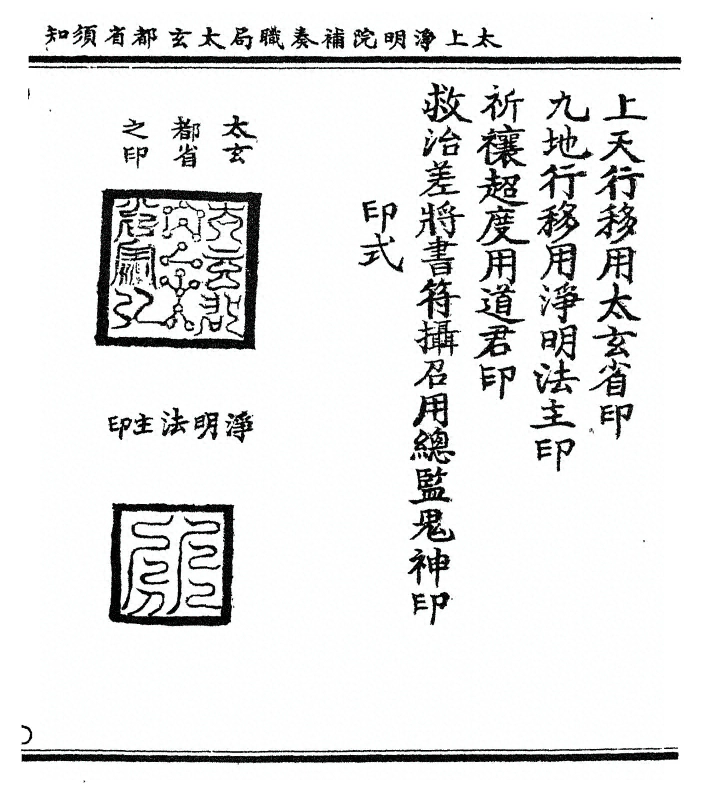 太上淨明院補奏職局太玄都省須知
上天行移用太玄省印
九地行移用淨明法主印
祈禳超度用道君印
救治差將書符攝召用總監鬼神印
印式
太玄
都省
之印
淨明法主印